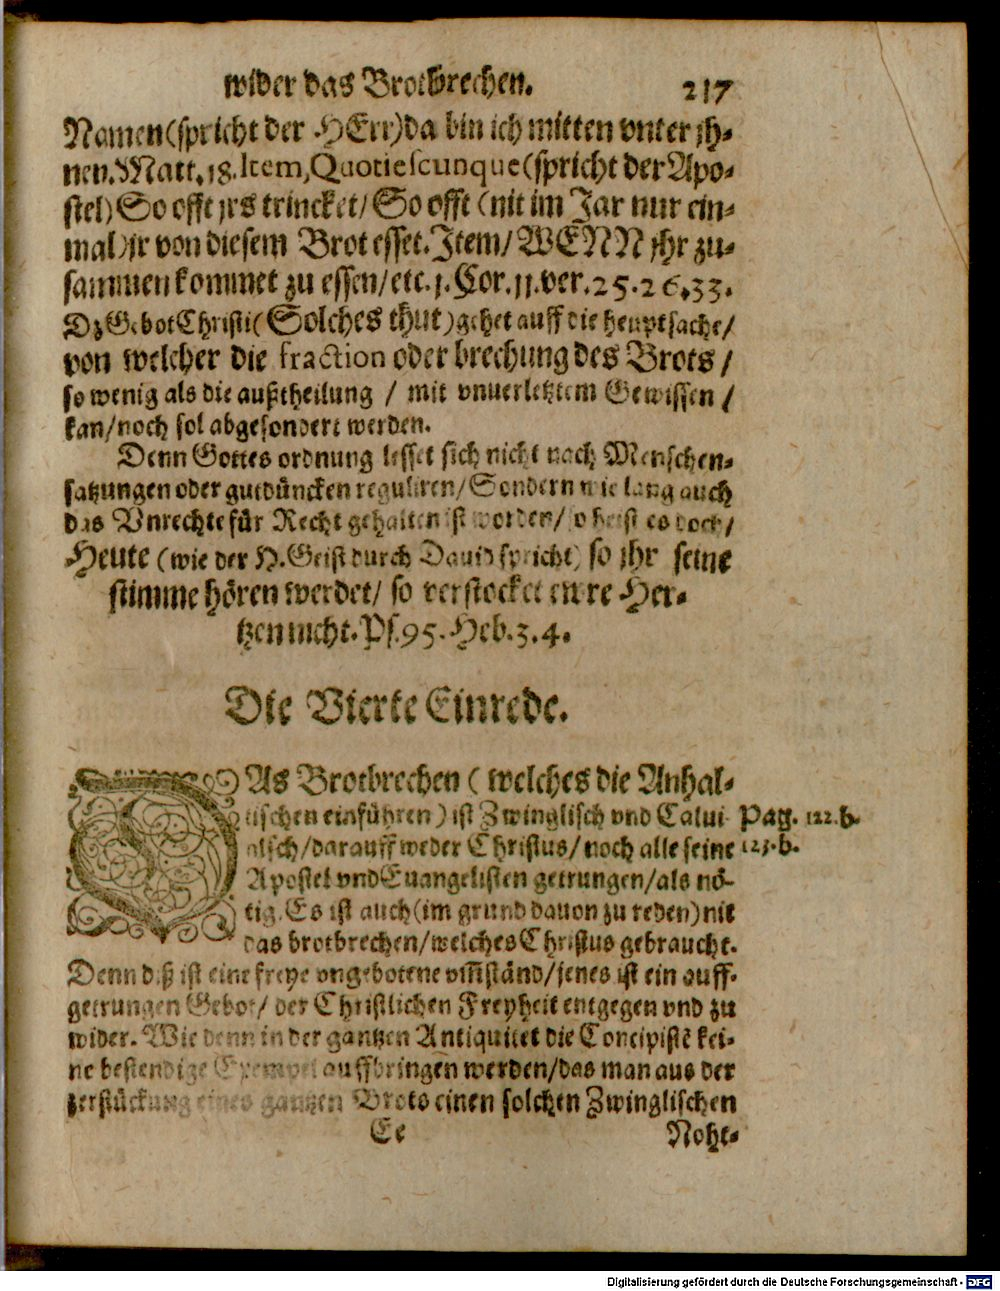 wider das Brotbrechen. 217
Namen (spricht der HErr) da bin ich mitten vnter jh-
nen. Matt. 18. Item, Quotiescunque (spricht der Apo-
stel) So offt jrs trincket / So offt (nit im Jar nur ein-
mal) jr von diesem Brot esset. Item / WENN jhr zu-
sammen kommet zu essen / etc. 1. Cor. 11. ver. 25. 26. 33.
Dz Gebot Christi (Solches thut) gehet auff die heuptsache /
von welcher die fraction oder brechung des Brots /
so wenig als die außtheilung / mit vnuerletztem Gewissen /
kan / noch sol abgesondert werden.
Denn Gottes ordnung lesset sich nicht nach Menschen-
satzungen oder gutdüncken reguliren / Sondern wie lang auch
das Vnrechte für Recht gehalten ist worden / so heist es doch /
Heute (wie der H. Geist durch Dauid spricht) so jhr seine
stimme hören werdet / so verstocket ewre Her-
tzen nicht. Ps. 95. Heb. 3. 4.
Die Vierte Einrede.
DAs Brotbrechen (welches die Anhal-
tischen einführen) ist Zwinglisch vnd Calui- Pag. 122. b.
nisch / darauff weder Christus / noch alle seine 123. b.
Apostel vnd Euangelisten getrungen / als nö-
tig. Es ist auch (im grund dauon zu reden) nit
das brotbrechen / welches Christus gebraucht.
Denn diß ist eine freye vngebotene vmständ / jenes ist ein auff-
getrungen Gebot / der Christlichen Freyheit entgegen vnd zu
wider. Wie denn in der gantzen Antiquitet die Concipistē kei-
ne bestendige Exempel auffbringen werden / das man aus der
zerstückung eines gantzen Brots einen solchen Zwinglischen
Ee Noht-
Digitalisierung gefördert durch die Deutsche Forschungsgemeinschaft - DFG